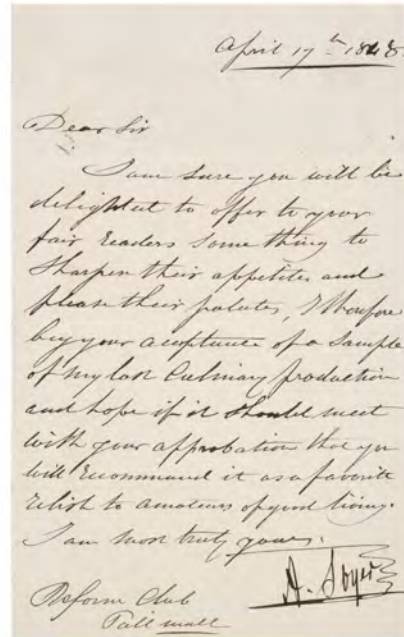 April 17th 1848.
Dear Sir
I am sure you will be
delightet to offer to your
fair readers some thing to
Sharpen their appetites and
please their palates, I therefore
beg your acceptance of a Sample
of my last Culinary production
and hope if it should meet
with your approbation that you
will Recommand it as a favorite
relish to amateurs of good living.
I am most truly yours.
A. Soyer
Reform Club
Pall mall